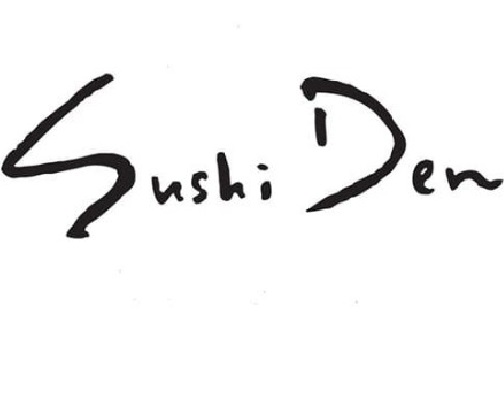 Sushi Den